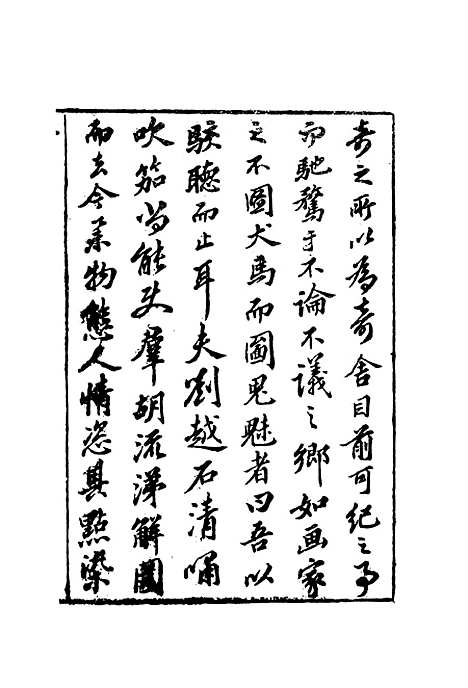 奇之所以為奇舍目前可紀之事
而馳騖于不論不議之鄉如画家
之不圖犬馬而圖鬼魅者曰吾以
駭聽而止耳夫劉越石清嘯
吹笳尚能使羣胡流涕解圍
而去今舉物態人情恣其點染